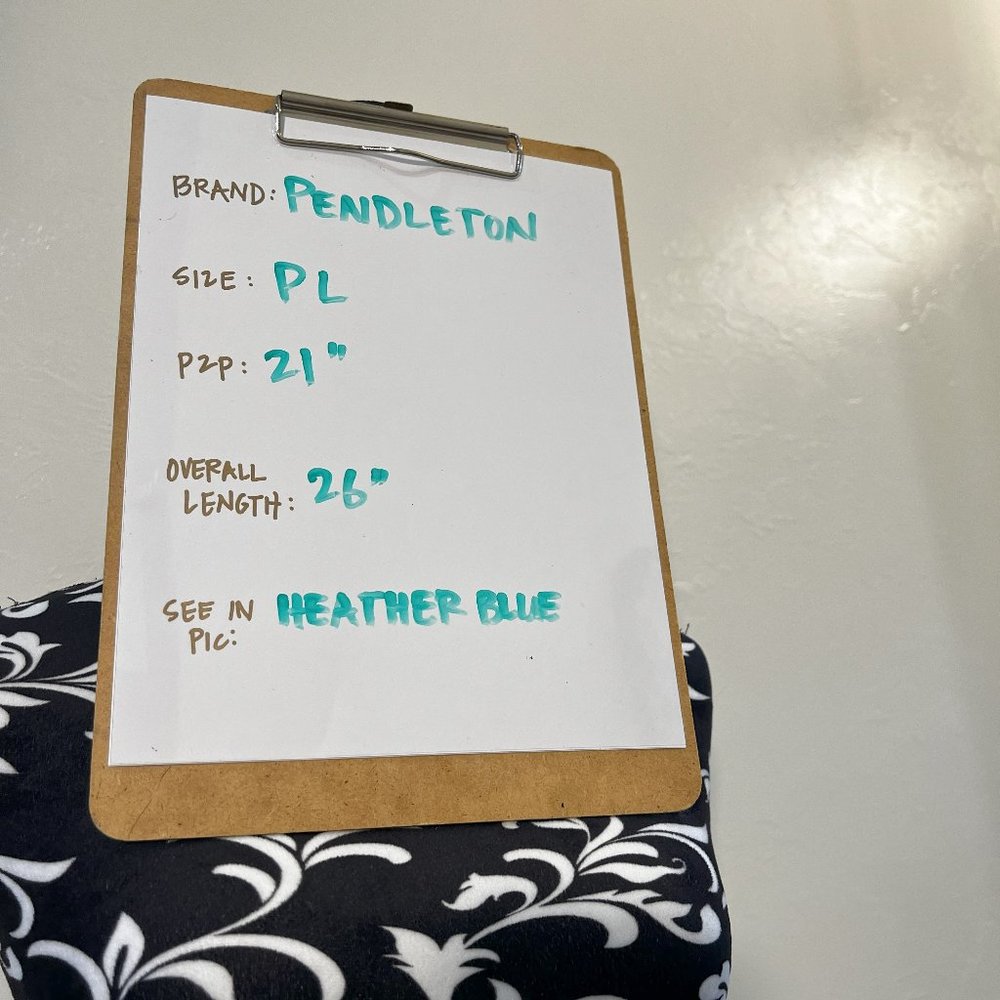 BRAND: PENDLETON
SIZE: PL
P2P: 21"
OVERALL
LENGTH: 26"
SEE IN HEATHER BLUE
PIC: